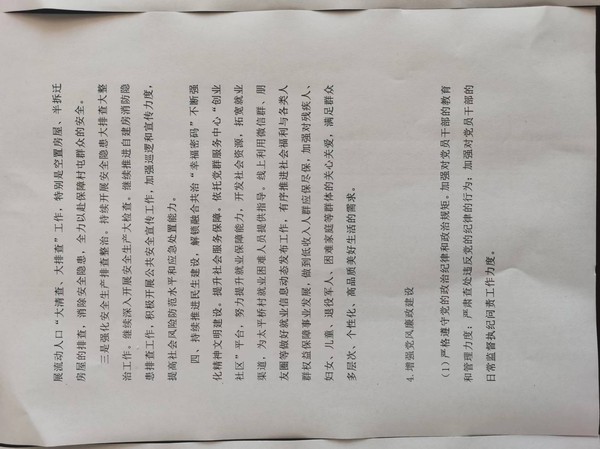 展流动人口“大清查、大排查”工作，特别是空置房屋、半拆迁
房屋的排查，消除安全隐患，全力以赴保障村屯群众的安全。
三是强化安全生产排查整治。持续开展安全隐患大排查大整
治工作。继续深入开展安全生产大检查。继续推进自建房消防隐
患排查工作，积极开展公共安全宣传工作，加强巡逻和宣传力度，
提高社会风险防范水平和应急处置能力。
四、持续推进民生建设，解锁融合共治“幸福密码”不断强
化精神文明建设。提升社会服务保障。依托党群服务中心“创业
社区”平台，努力提升就业保障能力，开发社会资源，拓宽就业
渠道，为太平桥村就业困难人员提供指导。线上利用微信群、朋
友圈等做好就业信息动态发布工作，有序推进社会福利与各类人
群权益保障事业发展，做到低收入人群应保尽保，加强对残疾人、
妇女、儿童、退役军人、困难家庭等群体的关心关爱，满足群众
多层次、个性化、高品质美好生活的需求。
4.增强党风廉政建设
（1）严格遵守党的政治纪律和政治规矩，加强对党员干部的教育
和管理力度；严肃查处违反党的纪律的行为；加强对党员干部的
日常监督执纪问责工作力度。